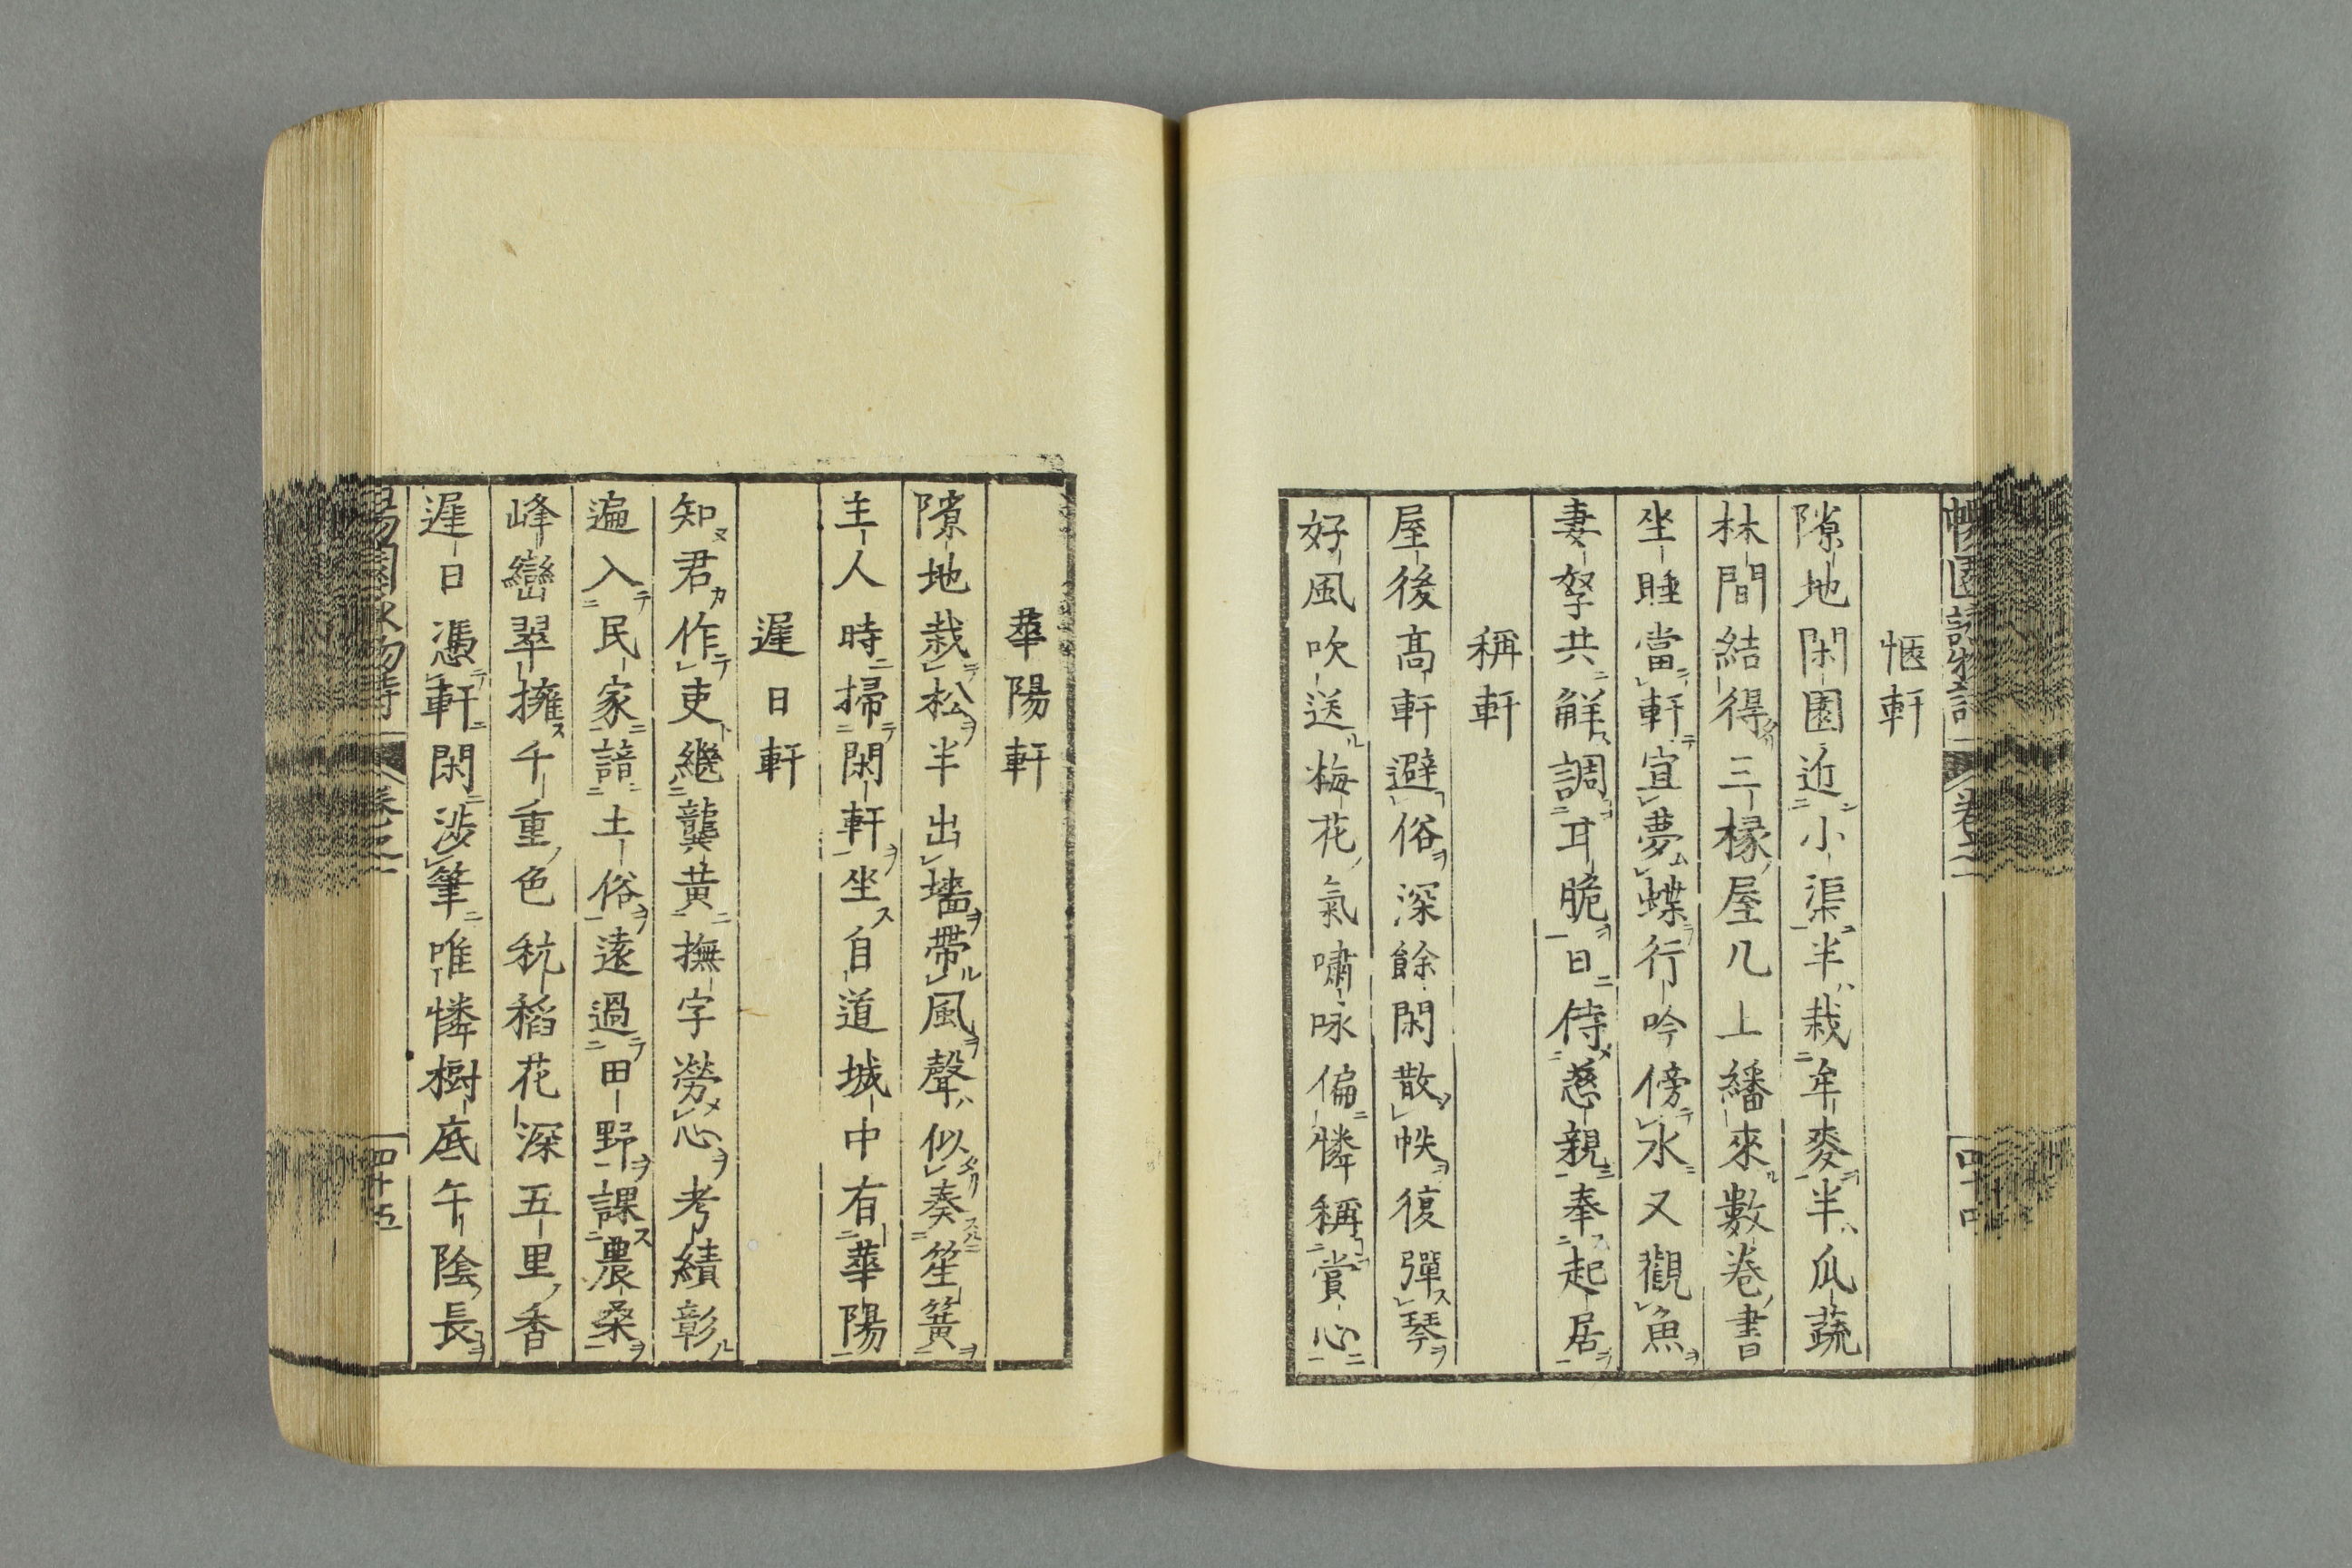 愜軒
隙地閑園近小渠半栽牟麥半瓜蔬
林間結得三椽屋几上繙來數卷書
坐睡當軒宜夢蝶行吟傍水又觀魚
妻孥共觧調耳脆日侍慈親奉起居
稱軒
屋後高軒避俗深餘閑散帙復彈琴
好風吹送梅花氣嘯咏偏憐稱賞心
四十四
華陽軒
隙地栽松半出墻帶風聲似奏笙簧
主人時掃閑軒坐自道城中有華陽
遲日軒
知君作吏繼龔黄撫字勞心考績彰
遍入民家諳土俗遠過田野課農桑
峰巒翠擁千重色秔稻花深五里香
遲日憑軒閑涉筆唯憐樹底午陰長
四十五